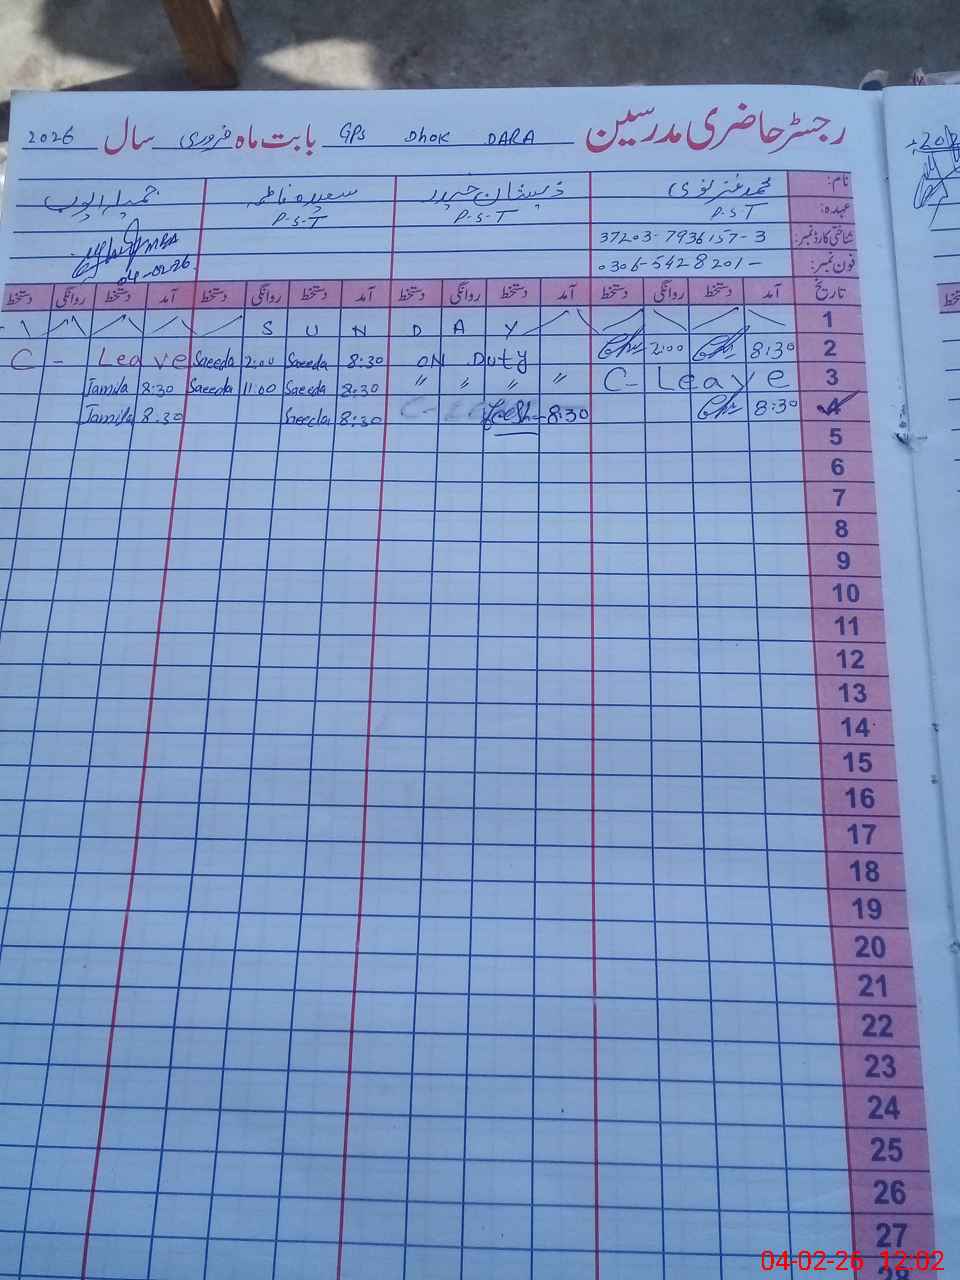 رجسٹر حاضری مدرسین GPS Dhok DARA بابت ماہ فروری سال 2026
نام: محمد غضر نوی ذیشان حیدر سعیدہ فاطمہ جمیلہ ایوب
عہدہ: P.S.T P.S.T P.S.T
شناختی کارڈ نمبر: 37203-7936157-3
فون نمبر: 0306-5428201- 04-02-26
تاریخ آمد دستخط روانگی دستخط آمد دستخط روانگی دستخط آمد دستخط روانگی دستخط آمد دستخط روانگی دستخط
1 S U N D A Y
2 8:30 2:00 ON Duty 8:30 Saeeda 2:00 Saeeda C - Leave
3 C-Leave " " " " 8:30 Saeeda 11:00 Saeeda 8:30 Jamila
4 8:30 8:30 8:30 Saeeda 8:30 Jamila
5
6
7
8
9
10
11
12
13
14
15
16
17
18
19
20
21
22
23
24
25
26
27
28
04-02-26 12:02